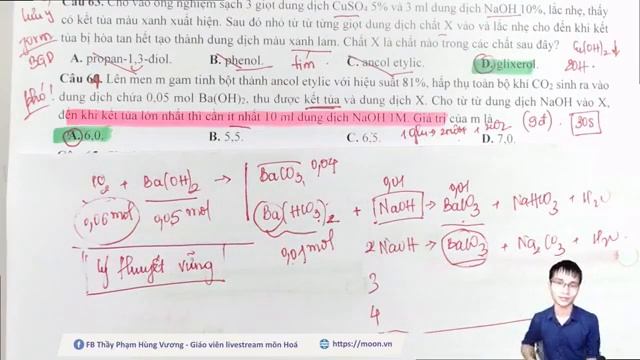 Câu 63. Cho vào ống nghiệm sạch 3 giọt dung dịch CuSO₄ 5% và 3 ml dung dịch NaOH 10%, lắc nhẹ, thấy
có kết tủa màu xanh xuất hiện. Sau đó nhỏ từ từ từng giọt dung dịch chất X vào và lắc nhẹ cho đến khi kết
tủa bị hòa tan hết tạo thành dung dịch màu xanh lam. Chất X là chất nào trong các chất sau đây?
Cu(OH)₂↓
A. propan-1,3-diol. B. phenol. C. ancol etylic. D. glixerol.
tím 2OH
BGD
Câu 64. Lên men m gam tinh bột thành ancol etylic với hiệu suất 81%, hấp thụ toàn bộ khí CO₂ sinh ra vào
khó!
dung dịch chứa 0,05 mol Ba(OH)₂, thu được kết tủa và dung dịch X. Cho từ từ dung dịch NaOH vào X,
đến khi kết tủa lớn nhất thì cần ít nhất 10 ml dung dịch NaOH 1M. Giá trị của m là
(9đ) 30s
A. 6,0. B. 5,5. C. 6,5. D. 7,0.
CO₂ + Ba(OH)₂ → BaCO₃ 0,04
0,06 mol 0,05 mol
0,01 0,01
Ba(HCO₃)₂ + NaOH → BaCO₃ + NaHCO₃ + H₂O
0,01 mol
2NaOH → BaCO₃ + Na₂CO₃ + H₂O
lý thuyết vững
3
4
FB Thầy Phạm Hùng Vương - Giáo viên livestream môn Hoá https://moon.vn